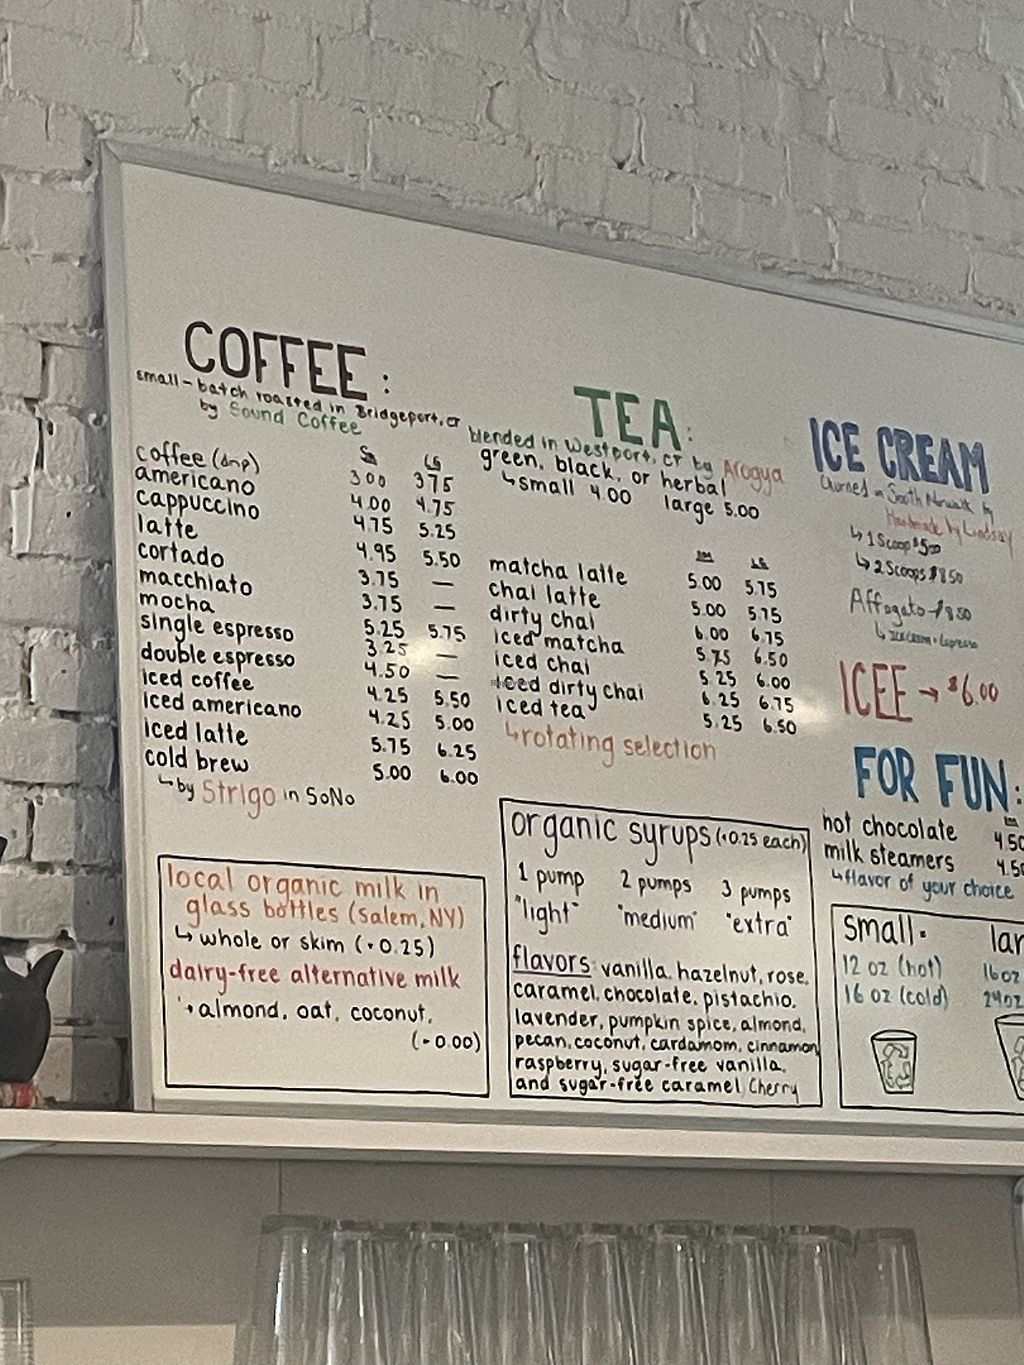 COFFEE:
small-batch roasted in Bridgeport, CT
by Sound Coffee
SM LG
coffee (drip) 3.00 3.75
americano 4.00 4.75
cappuccino 4.75 5.25
latte 4.95 5.50
cortado 3.75 —
macchiato 3.75 —
mocha 5.25 5.75
single espresso 3.25 —
double espresso 4.50 —
iced coffee 4.25 5.50
iced americano 4.25 5.00
iced latte 5.75 6.25
cold brew 5.00 6.00
↳ by Strigo in SoNo
local organic milk in
glass bottles (Salem, NY)
↳ whole or skim (+0.25)
dairy-free alternative milk
↳ almond, oat, coconut,
(-0.00)
TEA:
blended in Westport, CT by Arogya
green, black, or herbal
↳ small 4.00 large 5.00
SM LG
matcha latte 5.00 5.75
chai latte 5.00 5.75
dirty chai 6.00 6.75
iced matcha 5.75 6.50
iced chai 5.25 6.00
iced dirty chai 6.25 6.75
iced tea 5.25 6.50
↳ rotating selection
organic syrups (+0.25 each)
1 pump 2 pumps 3 pumps
"light" "medium" "extra"
flavors: vanilla, hazelnut, rose,
caramel, chocolate, pistachio,
lavender, pumpkin spice, almond,
pecan, coconut, cardamom, cinnamon
raspberry, sugar-free vanilla,
and sugar-free caramel, Cherry
ICE CREAM
Churned in South Norwalk by
Handmade by Lindsay
↳ 1 Scoop $5.00
↳ 2 Scoops $8.50
Affogato → $8.50
↳ Ice cream + Espresso
ICEE → $6.00
FOR FUN:
SM
hot chocolate 4.50
milk steamers 4.50
↳ flavor of your choice
small:
12 oz (hot)
16 oz (cold)
lar
16oz
24oz